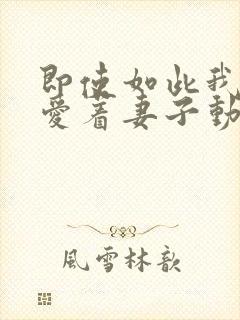 即使如此我
愛着妻子動
風雪林歆